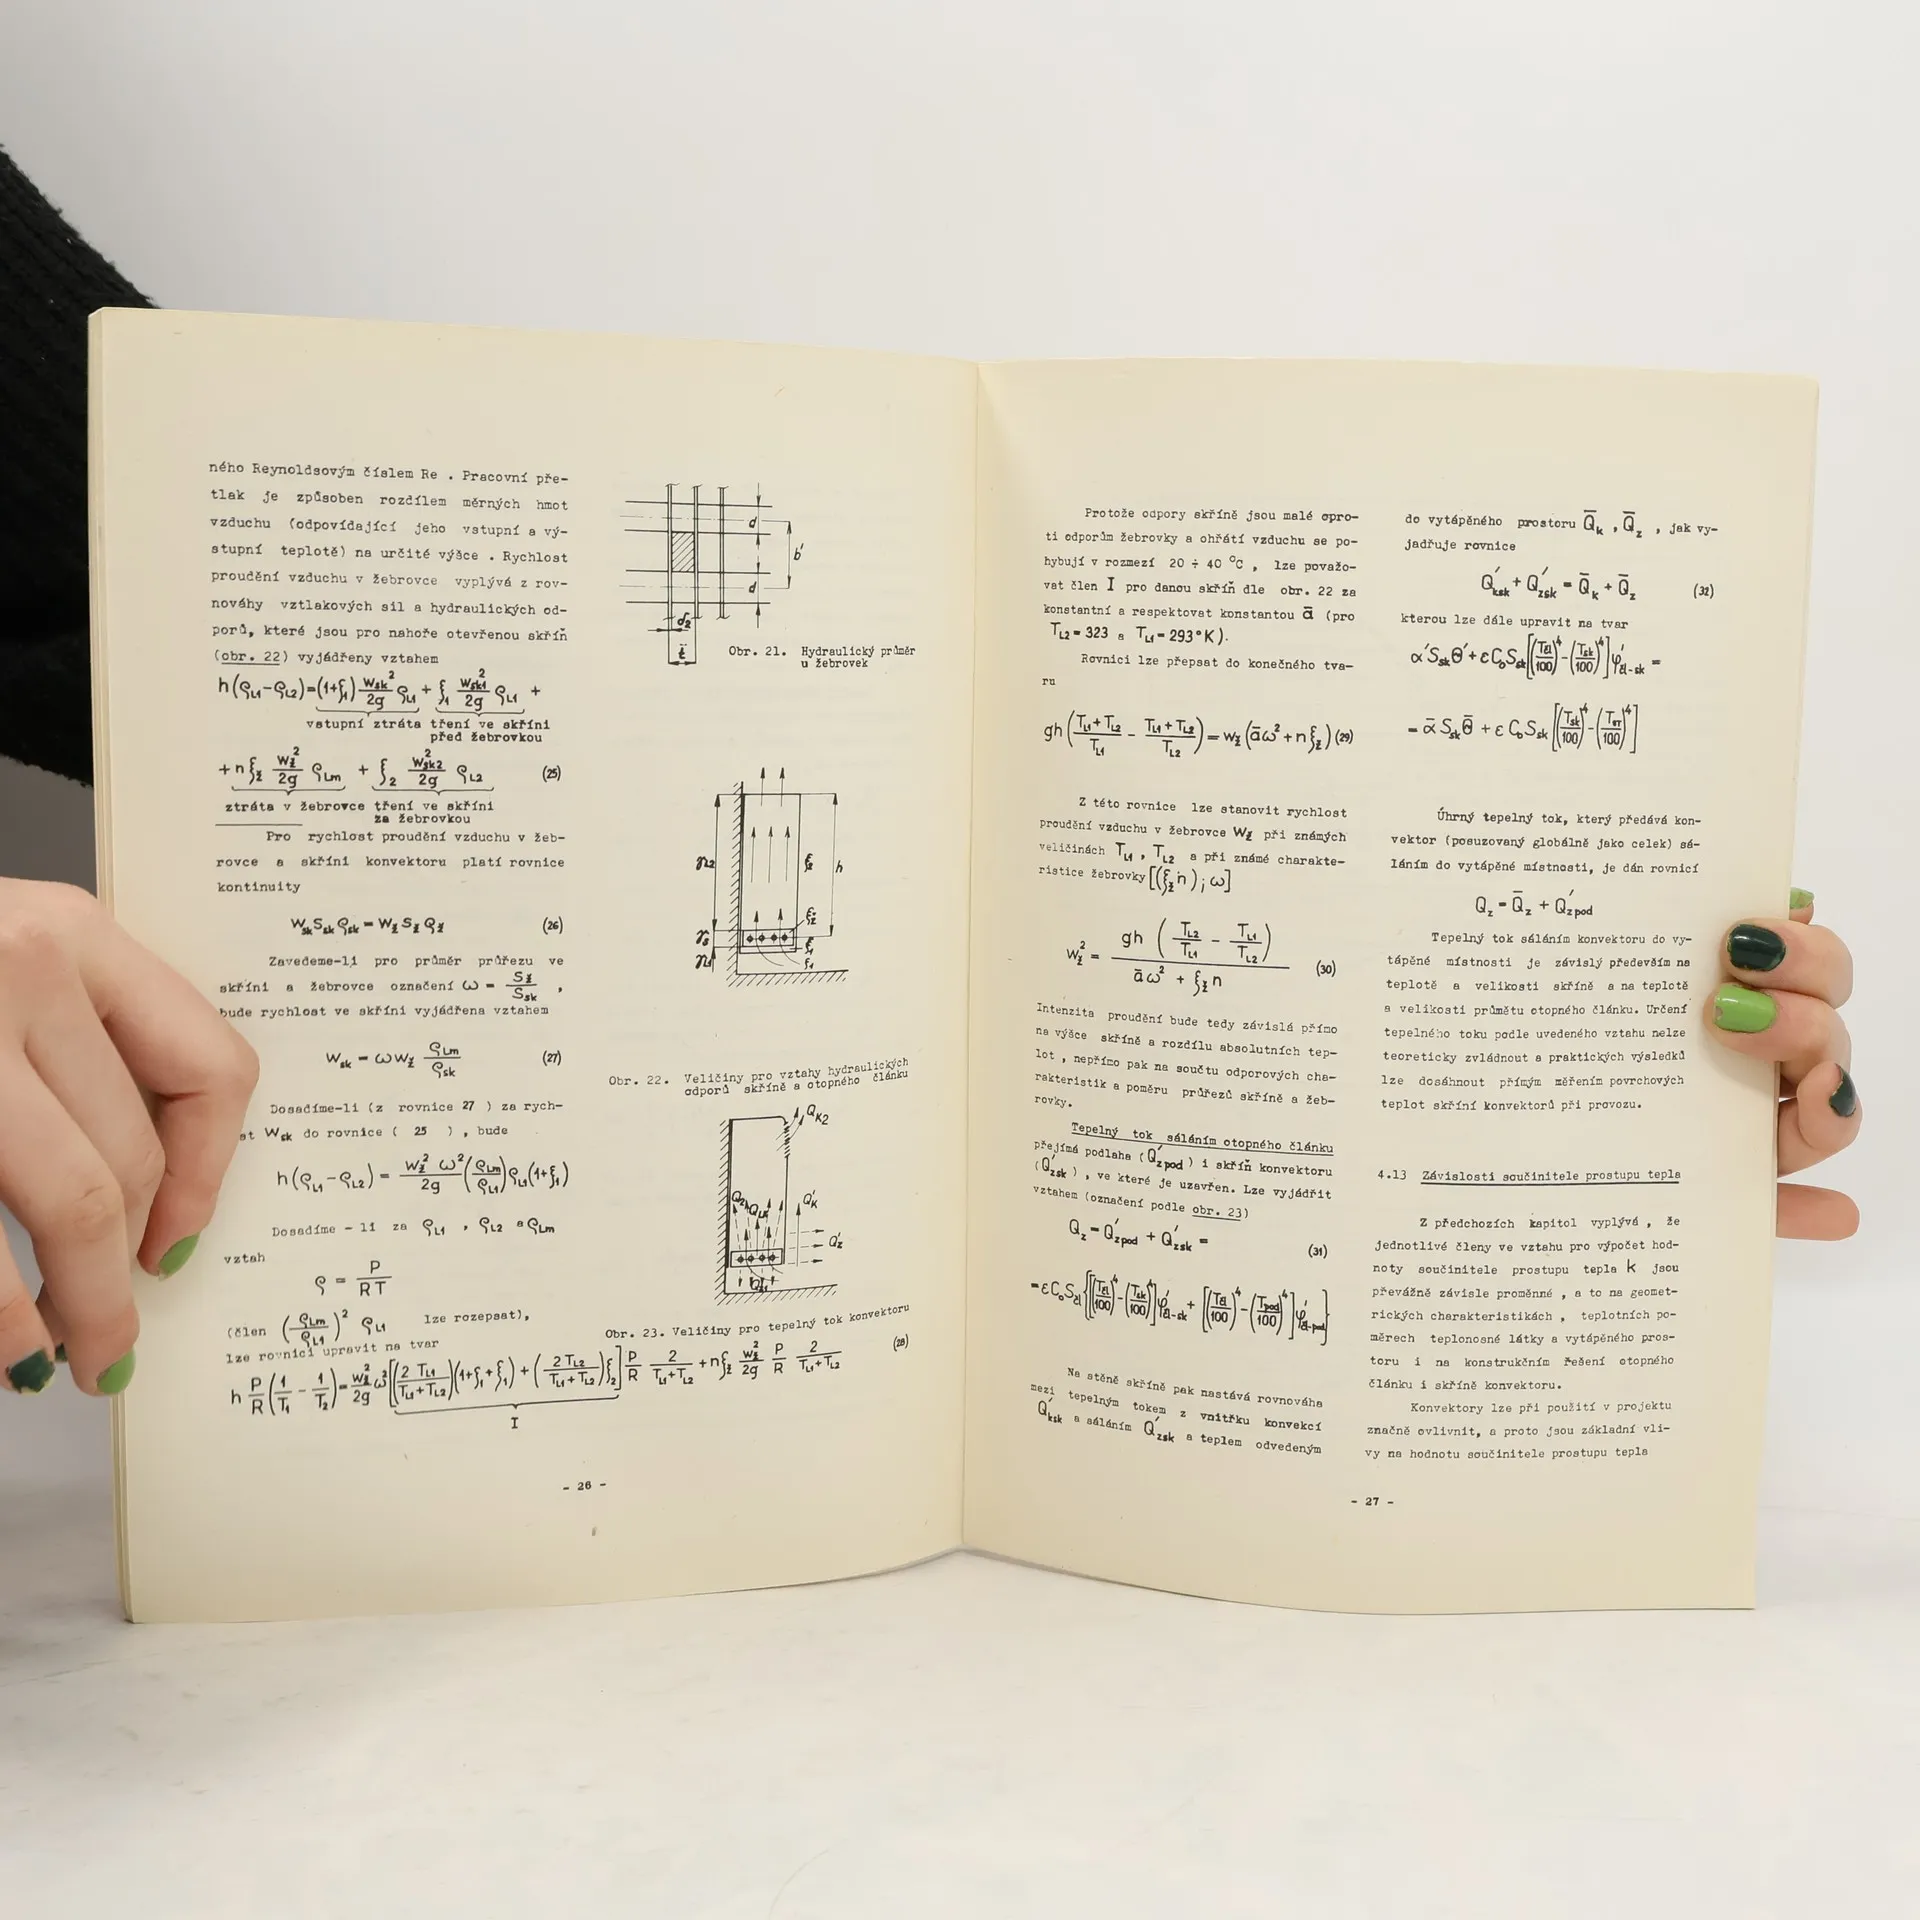 ného Reynoldsovým číslem Re . Pracovní pře-
tlak je způsoben rozdílem měrných hmot
vzduchu (odpovídající jeho vstupní a vý-
stupní teplotě) na určité výšce . Rychlost
proudění vzduchu v žebrovce vyplývá z rov-
nováhy vztlakových sil a hydraulických od-
porů, které jsou pro nahoře otevřenou skříň
(obr. 22) vyjádřeny vztahem
h(ϱL1-ϱL2)=(1+ξ1) wsk²/2g ϱL1 + ξ1 wsk1²/2g ϱL1 +
vstupní ztráta tření ve skříni
před žebrovkou
+nξž wž²/2g ϱLm + ξ2 wsk2²/2g ϱL2 (25)
ztráta v žebrovce tření ve skříni
za žebrovkou
Pro rychlost proudění vzduchu v žeb-
rovce a skříni konvektoru platí rovnice
kontinuity
wsk Ssk ϱsk = wž Sž ϱž (26)
Zavedeme-li pro průměr průřezu ve
skříni a žebrovce označení ω = Sž/Ssk ,
bude rychlost ve skříni vyjádřena vztahem
wsk = ω wž ϱLm/ϱsk (27)
Dosadíme-li (z rovnice 27 ) za rych-
st wsk do rovnice ( 25 ) , bude
h(ϱL1-ϱL2) = wž² ω²/2g (ϱLm/ϱL1) ϱL1(1+ξ1)
Dosadíme - li za ϱL1 , ϱL2 a ϱLm
vztah
ϱ = P/RT
(člen (ϱLm/ϱL1)² ϱL1 lze rozepsat),
lze rovnici upravit na tvar
h P/R (1/T1 - 1/T2) = wž²/2g ω² [(2TL1/(TL1+TL2))(1+ξ1+ξ1) + (2TL2/(TL1+TL2))ξ2] P/R 2/(TL1+TL2) + nξž wž²/2g P/R 2/(TL1+TL2) (28)
I
- 26 -
d
b'
d
d2
t
Obr. 21. Hydraulický průměr
u žebrovek
ξ2
h
ξž
ξ1
Obr. 22. Veličiny pro vztahy hydraulických
odporů skříně a otopného článku
QK2
Q'K
Q'z
Obr. 23. Veličiny pro tepelný tok konvektoru
Protože odpory skříně jsou malé opro-
ti odporům žebrovky a ohřátí vzduchu se po-
hybují v rozmezí 20 ÷ 40 °C , lze považo-
vat člen I pro danou skříň dle obr. 22 za
konstantní a respektovat konstantou ā (pro
TL2 = 323 a TL1 = 293°K).
Rovnici lze přepsat do konečného tva-
ru
gh((TL1+TL2)/TL1 - (TL1+TL2)/TL2) = wž(āω²+nξž) (29)
Z této rovnice lze stanovit rychlost
proudění vzduchu v žebrovce wž při známých
veličinách TL1 , TL2 a při známé charakte-
ristice žebrovky [(ξž n) ; ω]
wž² = gh (TL2/TL1 - TL1/TL2) / (āω² + ξž n) (30)
Intenzita proudění bude tedy závislá přímo
na výšce skříně a rozdílu absolutních tep-
lot , nepřímo pak na součtu odporových cha-
rakteristik a poměru průřezů skříně a žeb-
rovky.
Tepelný tok sáláním otopného článku
přejímá podlaha (Q'zpod) i skříň konvektoru
(Q'zsk) , ve které je uzavřen. Lze vyjádřit
vztahem (označení podle obr. 23)
Qz = Q'zpod + Q'zsk = (31)
= εCoSčl{[(Tčl/100)⁴-(Tsk/100)⁴]φ'čl-sk + [(Tčl/100)⁴-(Tpod/100)⁴]φ'čl-pod}
Na stěně skříně pak nastává rovnováha
mezi tepelným tokem z vnitřku konvekcí
Q'ksk a sáláním Q'zsk a teplem odvedeným
do vytápěného prostoru Q̄k , Q̄z , jak vy-
jadřuje rovnice
Q'ksk + Q'zsk = Q̄k + Q̄z (32)
kterou lze dále upravit na tvar
α'SskΘ'+εCoSsk[(Tčl/100)⁴-(Tsk/100)⁴]φ'čl-sk =
= ᾱSskΘ̄ + εCoSsk[(Tsk/100)⁴-(Tst/100)⁴]
Úhrný tepelný tok, který předává kon-
vektor (posuzovaný globálně jako celek) sá-
láním do vytápěné místnosti, je dán rovnicí
Qz = Q̄z + Q'zpod
Tepelný tok sáláním konvektoru do vy-
tápěné místnosti je závislý především na
teplotě a velikosti skříně a na teplotě
a velikosti průmětu otopného článku. Určení
tepelného toku podle uvedeného vztahu nelze
teoreticky zvládnout a praktických výsledků
lze dosáhnout přímým měřením povrchových
teplot skříní konvektorů při provozu.
4.13 Závislosti součinitele prostupu tepla
Z předchozích kapitol vyplývá , že
jednotlivé členy ve vztahu pro výpočet hod-
noty součinitele prostupu tepla k jsou
převážně závisle proměnné , a to na geomet-
rických charakteristikách , teplotních po-
měrech teplonosné látky a vytápěného pros-
toru i na konstrukčním řešení otopného
článku i skříně konvektoru.
Konvektory lze při použití v projektu
značně ovlivnit, a proto jsou základní vli-
vy na hodnotu součinitele prostupu tepla
- 27 -